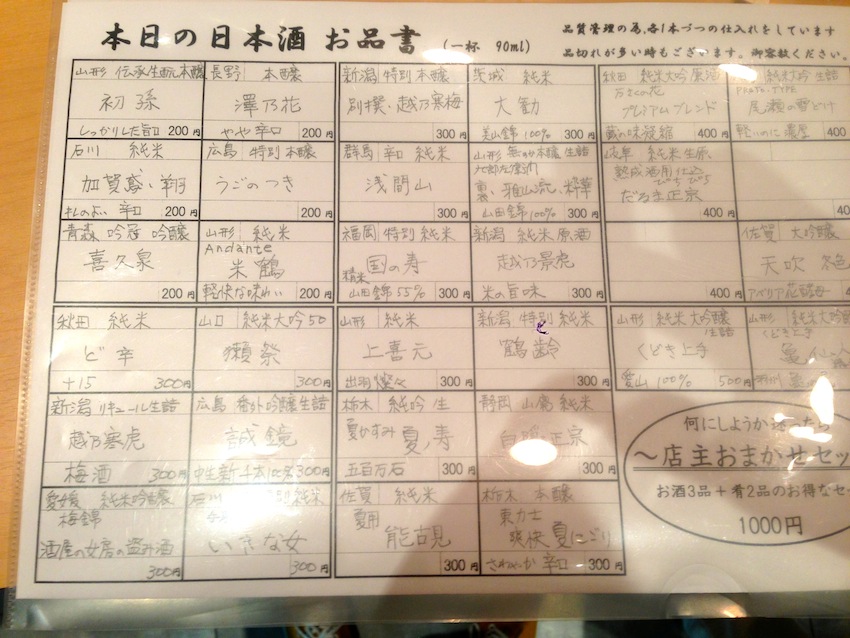 本日の日本酒 お品書 (一杯 90ml)
品質管理の為、各1本づつの仕入れをしています
品切れが多い時もございます。御容赦ください。
山形 伝承生酛本醸
初孫
しっかりした旨口 200円
長野 本醸
澤乃花
やや辛口 200円
新潟 特別本醸
別撰・越乃寒梅
300円
茨城 純米
大勧
美山錦100% 300円
秋田 純米大吟 原酒
まんさくの花
プレミアムブレンド
蔵の味凝縮 400円
純米大吟 生詰
PROTO-TYPE
尾瀬の雪どけ
軽いのに濃厚 400
石川 純米
加賀鳶・翔
キレのよい 辛口 200円
広島 特別本醸
うごのつき
200円
群馬 辛口 純米
浅間山
300円
山形 無ろ過本醸 生詰
裏・雅山流・粋華
山田錦100% 300円
岐阜 純米生原、
熟成酒用仕込
だるま正宗
400円
青森 吟冠 吟醸
喜久泉
200円
山形 純米
Andante
米鶴
軽快な味わい 200円
福岡 特別純米
国の寿
精米
山田錦55% 300円
新潟 純米原酒
越乃景虎
米の旨味 300円
400円
佐賀 大吟醸
天吹 冬色
アベリア花酵母 400
秋田 純米
ど辛
+15 300円
山口 純米大吟50
獺祭
300円
山形 純米
上喜元
出羽燦々 300円
新潟 特別純米
と
鶴齢
300円
山形 純米大吟醸
生詰
くどき上手
愛山100% 500円
山形 純米大吟醸
くどき上
亀
新潟 リキュール生詰
越乃寒虎
梅酒 300円
広島 番外吟醸生詰
誠鏡
中生新千本100% 300円
栃木 純吟生
夏がすみ 夏ノ寿
五百万石 300円
静岡 山廃純米
正宗
300円
何にしようか迷ったら
〜店主おまかせセッ
お酒3品+肴2品のお得なセッ
1000円
愛媛 純米吟醸
梅錦
酒屋の女房の盗み酒
300円
石川 純米
いきな女
300円
佐賀 純米
夏用
能古見
300円
栃木 本醸
東力士
爽快 夏にごり
さわやか 辛口 300円